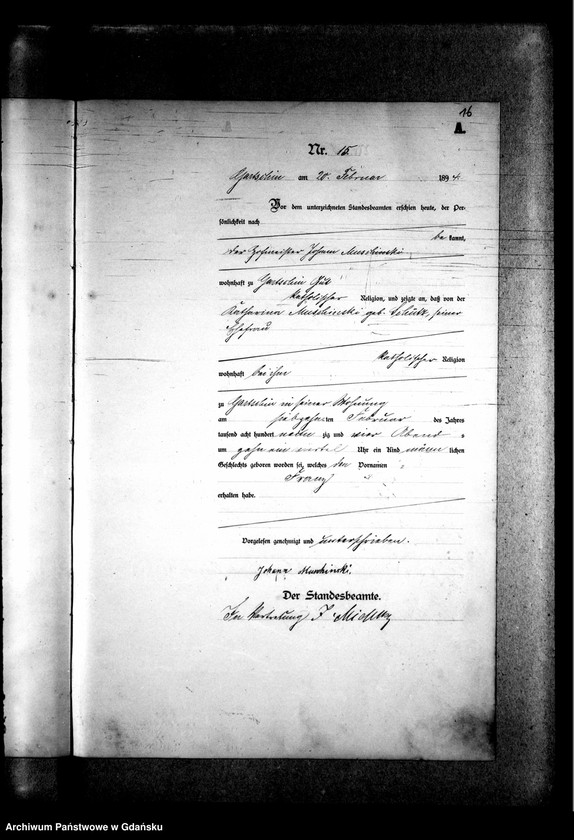 16
A.
Nr. 15
Gartschin am 20. Februar 1894.
Vor dem unterzeichneten Standesbeamten erschien heute, der Per-
sönlichkeit nach
be kannt,
der Hofmeister Johann Muschinski
wohnhaft zu Gartschin Gut
katholischer Religion, und zeigte an, daß von der
Katharina Muschinski geb. Schütz, seiner
Ehefrau
katholischer Religion
wohnhaft bei ihm
zu Gartschin in seiner Wohnung
am siebzehnten Februar des Jahres
tausend acht hundert neun zig und vier Abend s
um zehn ein viertel Uhr ein Kind männ lichen
Geschlechts geboren worden sei, welches den Vornamen
Franz
erhalten habe.
Vorgelesen, genehmigt und unterschrieben.
Johann Muschinski.
Der Standesbeamte.
In Vertretung
Archiwum Państwowe w Gdańsku